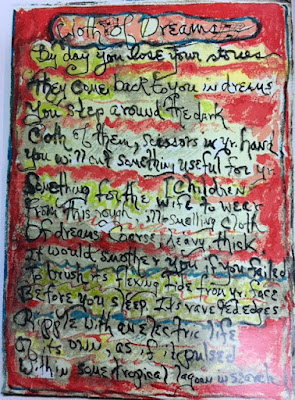 Cloth of Dreams
By day you lose your stories
They come back to you in dreams
You step around the dark
Cloth of them, scissors in yr. hand
You will cut something useful for yr.
Something for the wife & children
From this rough, ill-smelling cloth
Of dreams. Coarse, heavy, thick
It would smother you if you failed
To brush its flexing tide from yr. face
Before you sleep. Its raveled edges
Ripple with an electric life
Of its own, as if it pulsed
Within some tropical lagoon in search